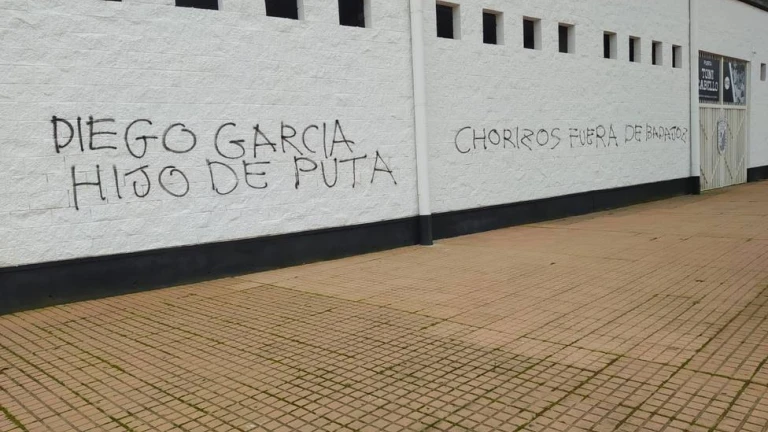 DIEGO GARCIA
HIJO DE PUTA
CHORIZOS FUERA DE BADAJOZ
TONI